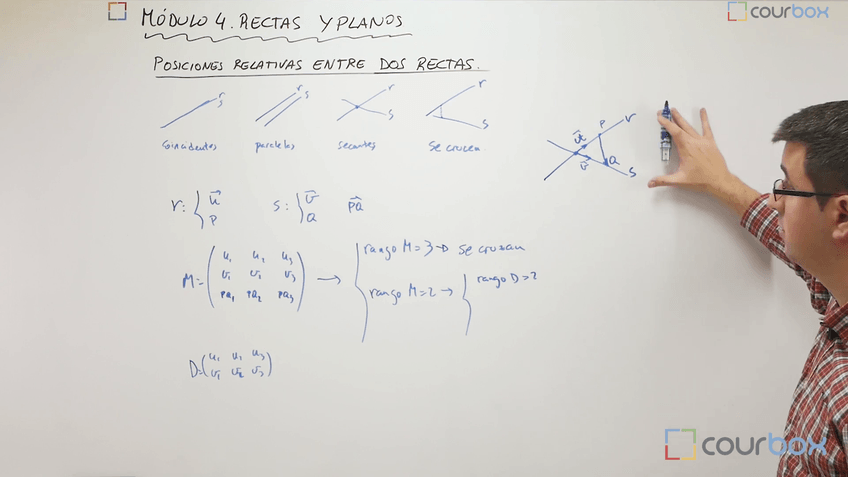 MÓDULO 4. RECTAS Y PLANOS
courbox
POSICIONES RELATIVAS ENTRE DOS RECTAS.
r s
r s
r s
r s
coincidentes paralelas secantes Se cruzan
u⃗ P r
v⃗ Q s
r: { u⃗ P
s: { v⃗ Q
PQ⃗
M = ( u₁ u₂ u₃
v₁ v₂ v₃
PQ₁ PQ₂ PQ₃ ) →
rango M = 3 → Se cruzan
rango M = 2 → { rango D = 2
D = ( u₁ u₂ u₃
v₁ v₂ v₃ )
courbox